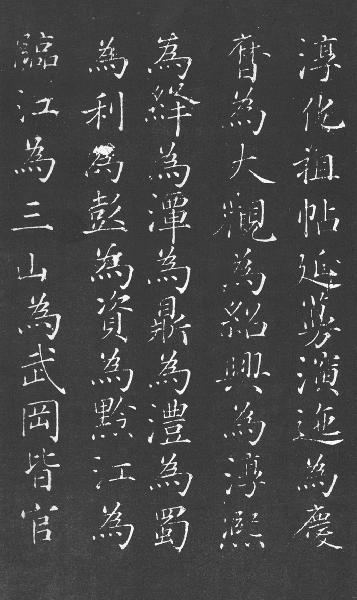 淳化祖帖延蔓演迤為慶
曆為大觀為紹興為淳熙
為絳為潭為鼎為澧為蜀
為利為彭為資為黔江為
臨江為三山為武岡皆官